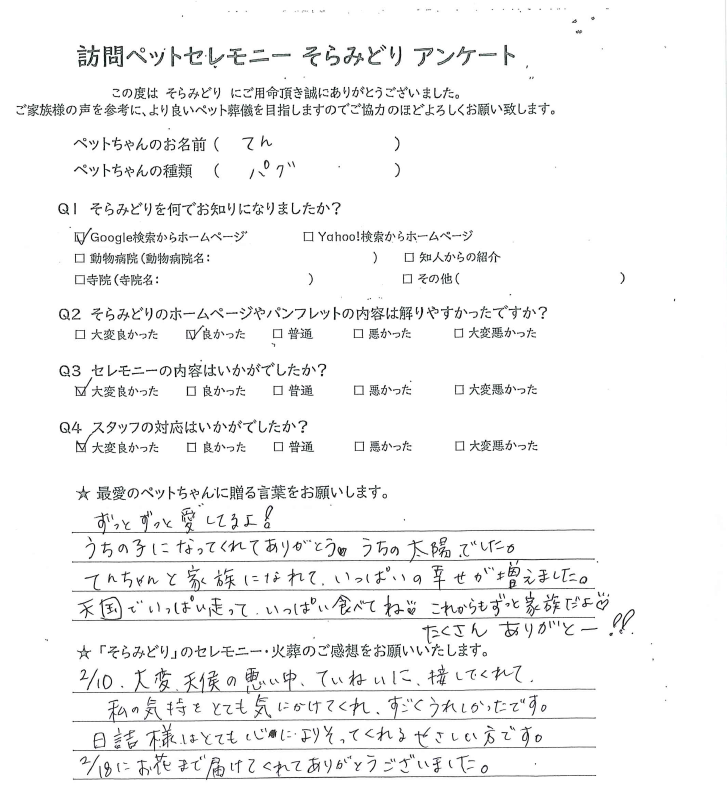 訪問ペットセレモニー そらみどり アンケート
この度は そらみどり にご用命頂き誠にありがとうございました。
ご家族様の声を参考に、より良いペット葬儀を目指しますのでご協力のほどよろしくお願い致します。
ペットちゃんのお名前 ( てん )
ペットちゃんの種類 ( パグ )
Q1 そらみどりを何でお知りになりましたか?
☑Google検索からホームページ □Yahoo!検索からホームページ
□ 動物病院(動物病院名: ) □ 知人からの紹介
□寺院(寺院名: ) □ その他( )
Q2 そらみどりのホームページやパンフレットの内容は解りやすかったですか?
□ 大変良かった ☑良かった □ 普通 □ 悪かった □ 大変悪かった
Q3 セレモニーの内容はいかがでしたか?
☑ 大変良かった □ 良かった □ 普通 □ 悪かった □ 大変悪かった
Q4 スタッフの対応はいかがでしたか?
☑ 大変良かった □ 良かった □ 普通 □ 悪かった □ 大変悪かった
☆ 最愛のペットちゃんに贈る言葉をお願いします。
ずっとずっと愛してるよ!
うちの子になってくれてありがとう♥ うちの太陽でした。
てんちゃんと家族になれて、いっぱいの幸せが増えました。
天国でいっぱい走って、いっぱい食べてね♡ これからもずっと家族だよ♡
たくさん ありがとー!!
☆「そらみどり」のセレモニー・火葬のご感想をお願いいたします。
2/10、大変、天候の悪い中、ていねいに、接してくれて、
私の気持をとても気にかけてくれ、すごくうれしかったです。
日詰様はとても心によりそってくれるやさしい方です。
2/18にお花まで届けてくれてありがとうございました。